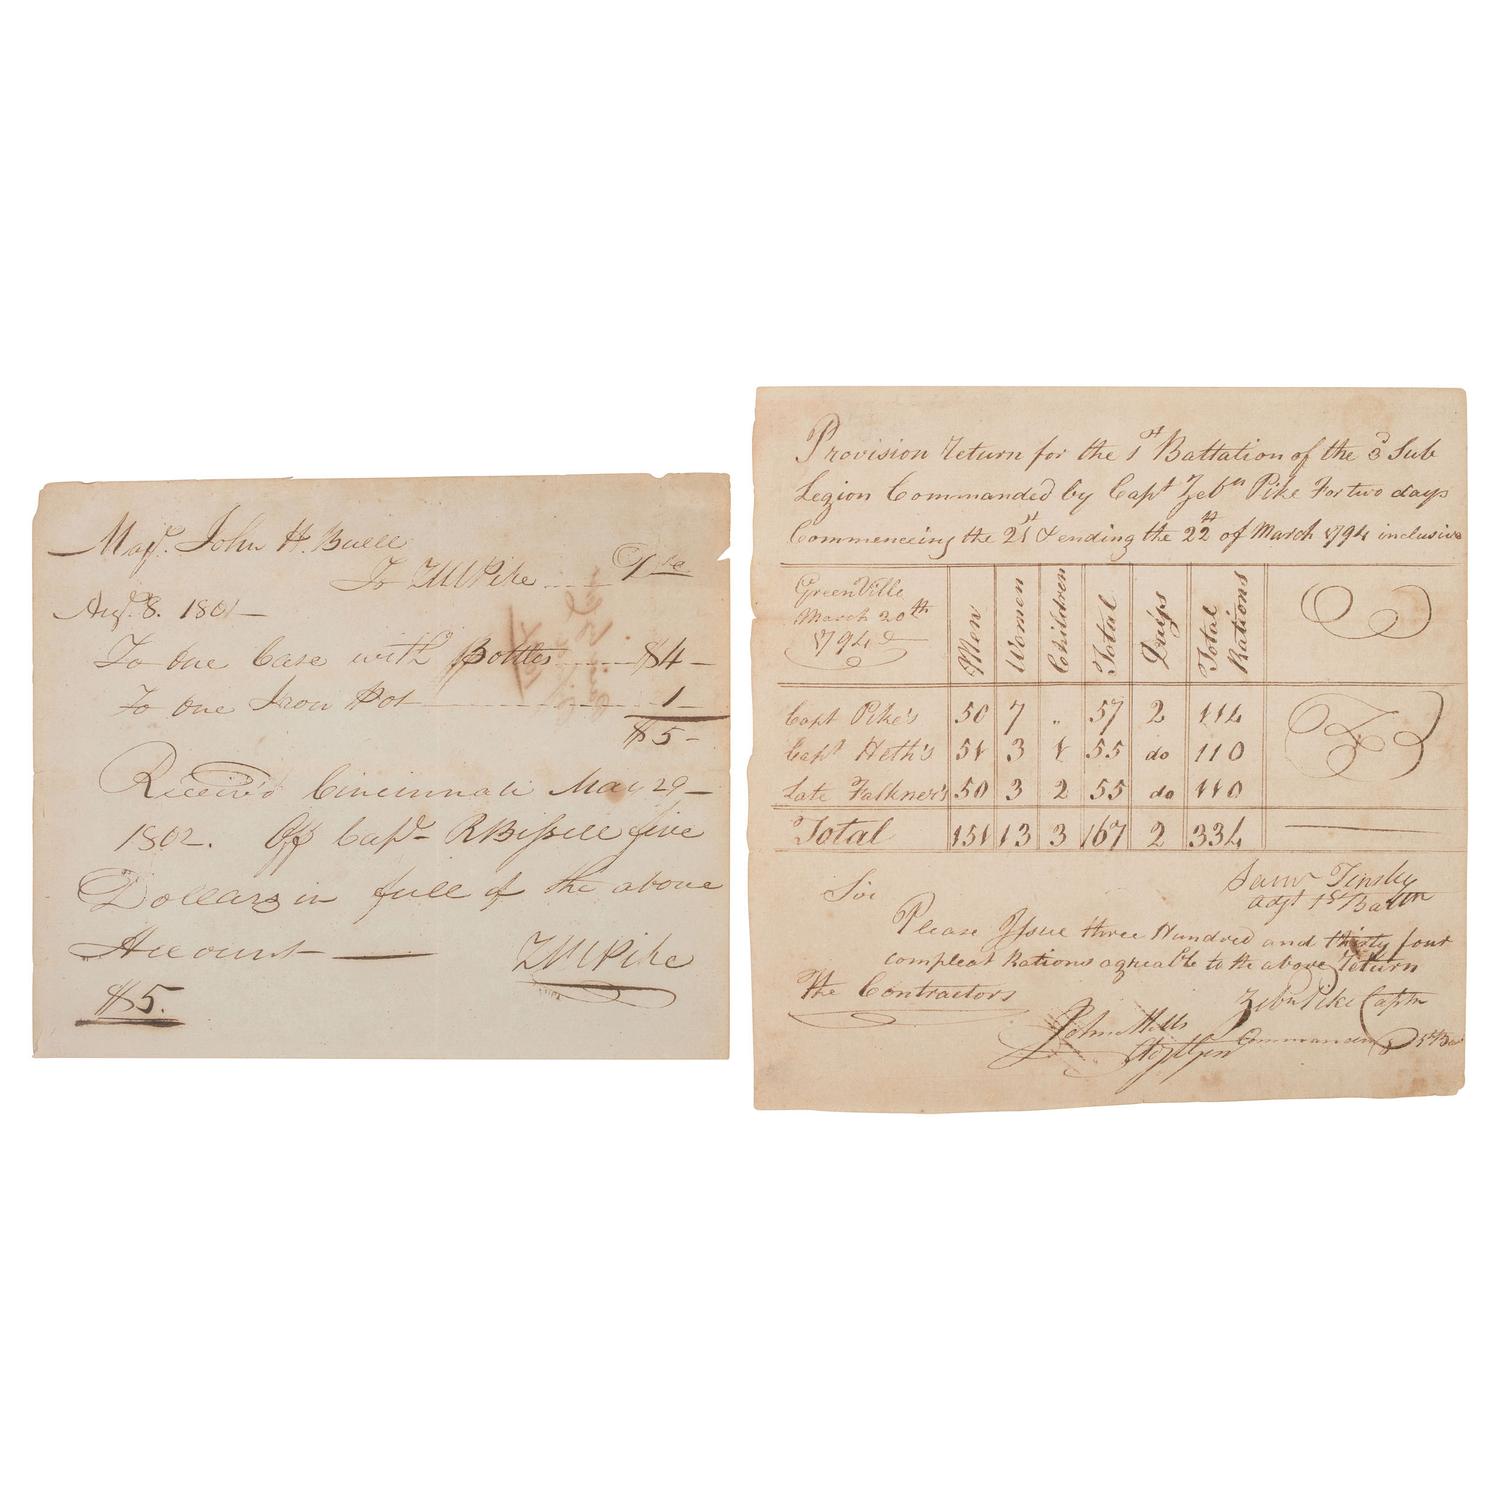 Majr. John H. Buell
To ZMPike Dr
Augt. 8. 1801 —
To one Case with Bottles $4 —
To one Iron Pot 1 —
$5 —
Receiv'd Cincinnati May 29 —
1802. Off Capt RBissell five
Dollars in full of the above
Account —
ZMPike
$5.
Provision return for the 1st Battalion of the 3d Sub
Legion Commanded by Capt Zebn Pike For two days
Commenceing the 21st & ending the 22th of March 1794 inclusive
GreenVille
March 20th
1794
Men Women Children Total Days Total Rations
Capt Pike's 50 7 " 57 2 114
Capt Heth's 51 3 1 55 do 110
Late Falkner's 50 3 2 55 do 110
Total 151 13 3 167 2 334
Saml Tinsley
adjt 1st Battn
Sir
Please Issue three Hundred and thirty four
compleat Rations agreable to the above return
The Contractors
Zebn Pike Captn
John Mills
Commanding 1st Ba